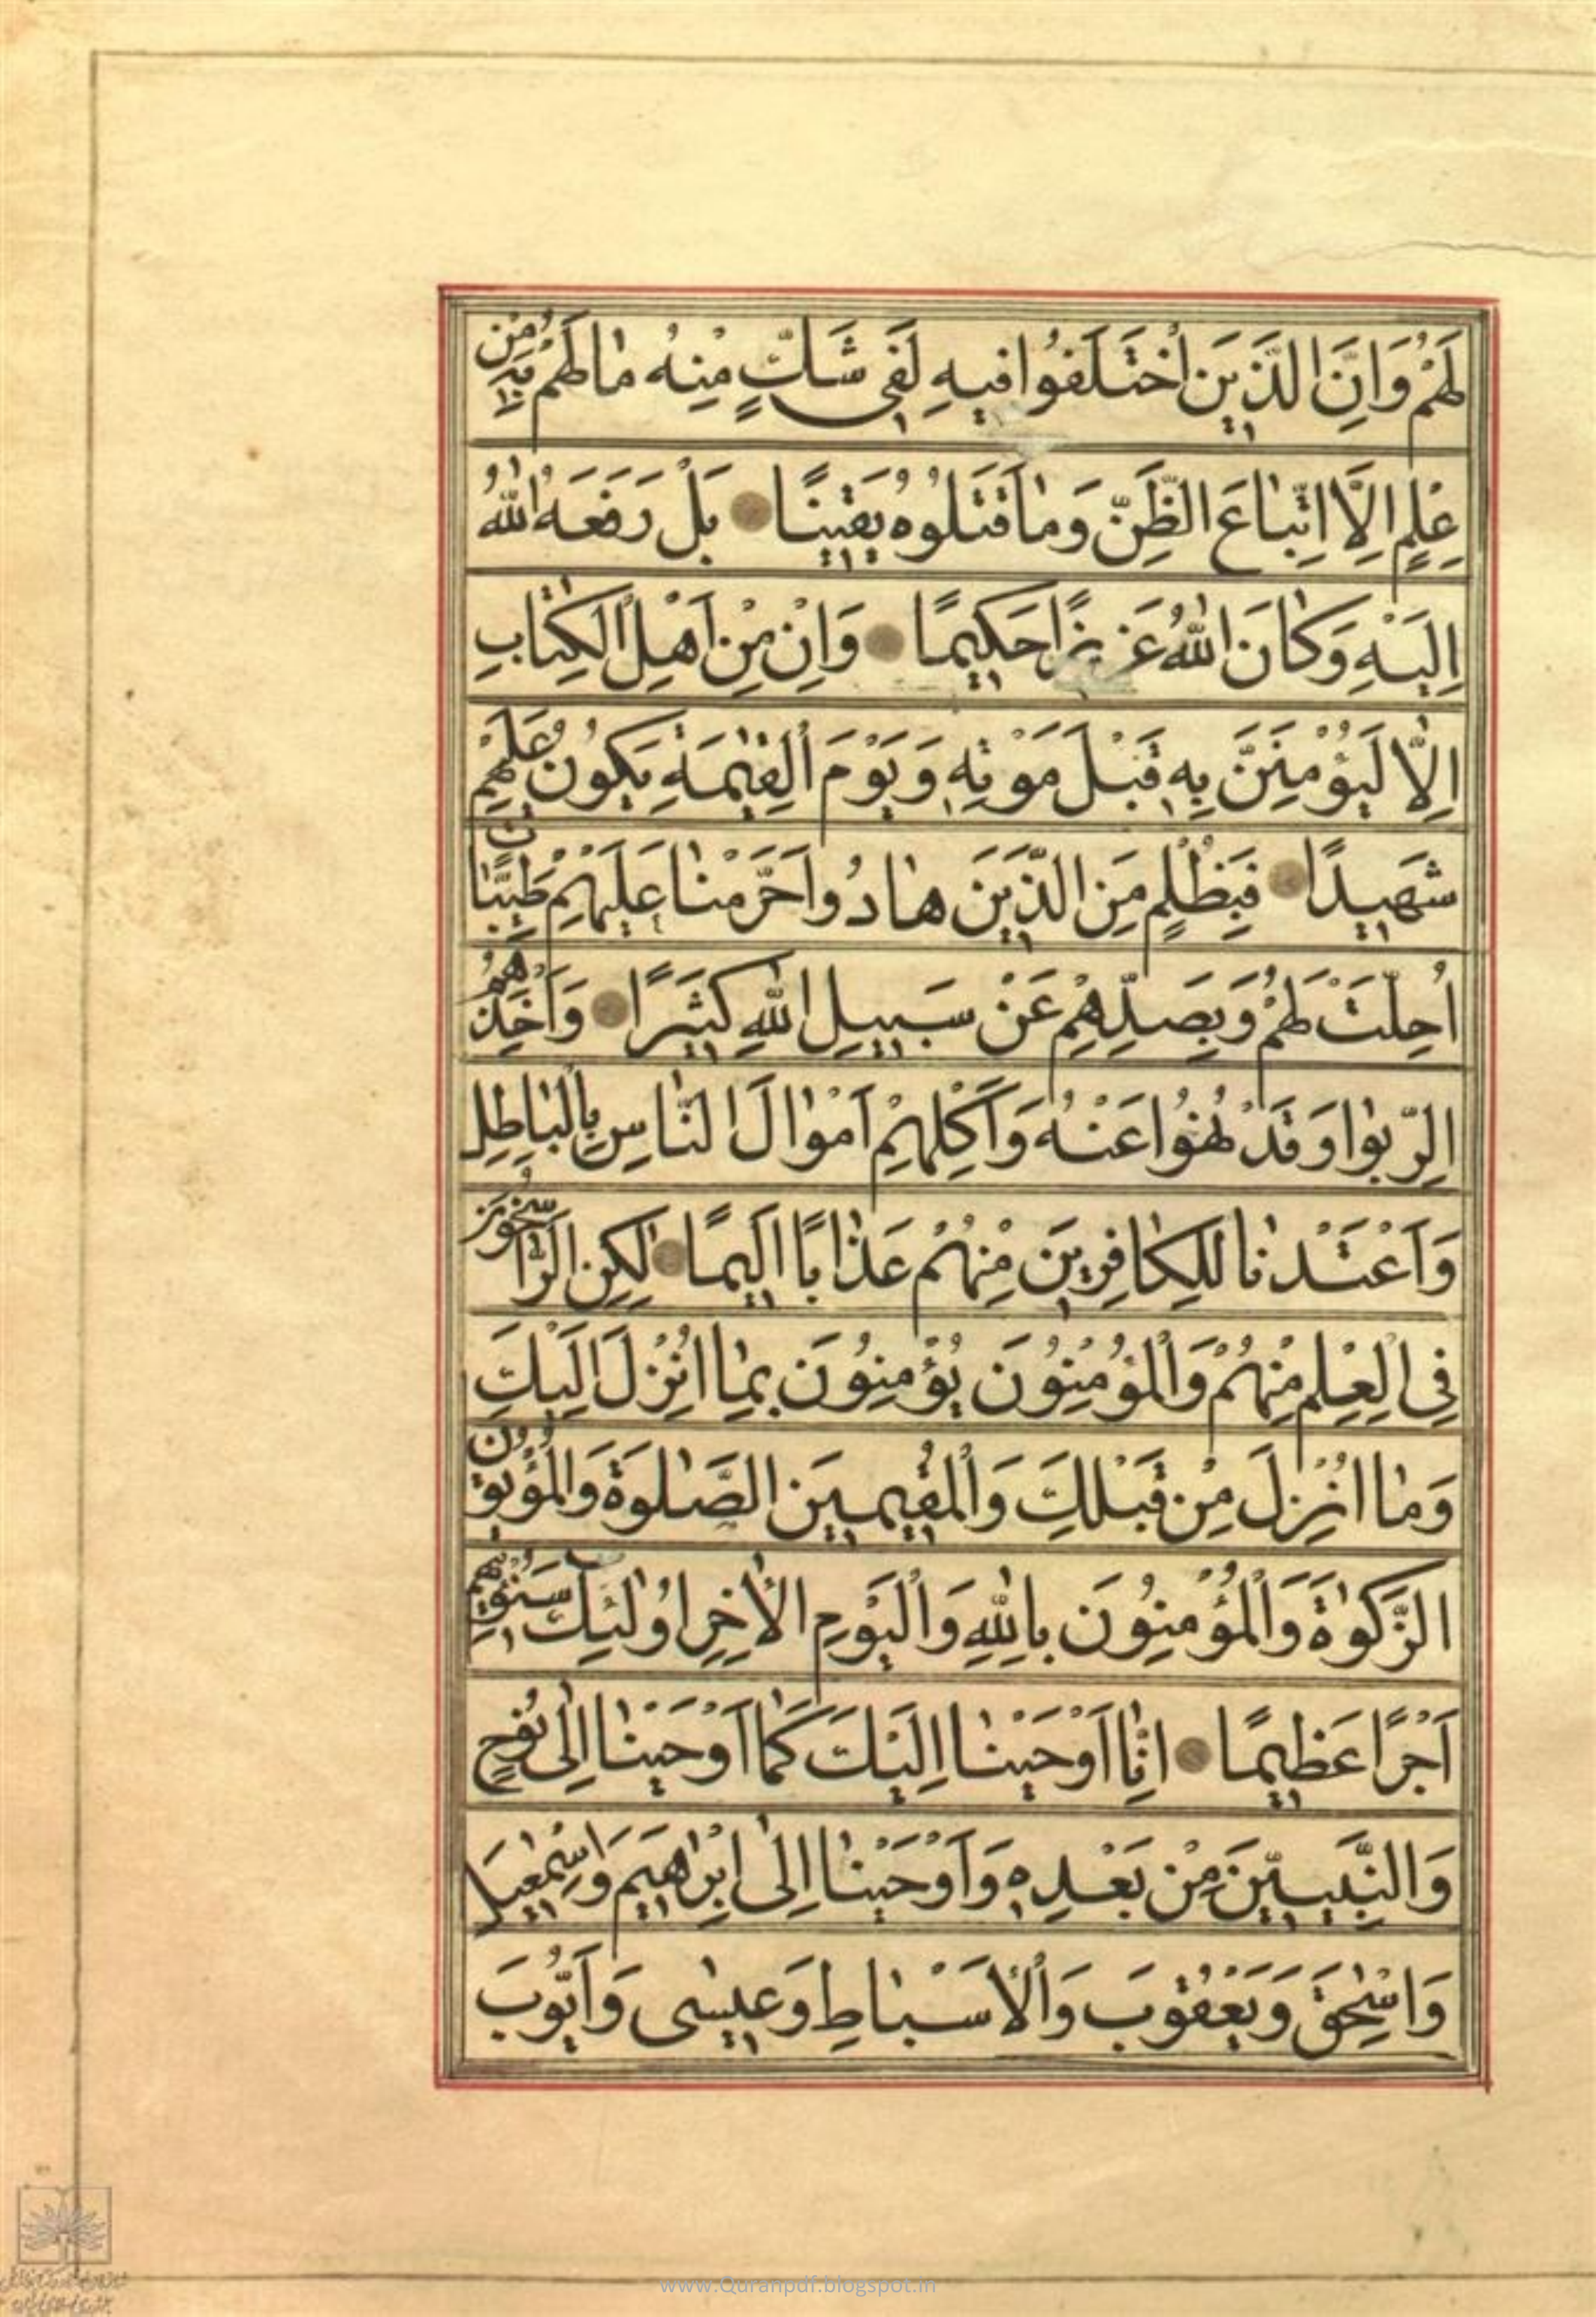 لَهُمْ وَاِنَّ الَّذِينَ اخْتَلَفُوا فِيهِ لَفِي شَكٍّ مِنْهُ مَا لَهُمْ بِهِ مِنْ
عِلْمٍ اِلَّا اتِّبَاعَ الظَّنِّ وَمَا قَتَلُوهُ يَقِينًا بَلْ رَفَعَهُ اللّٰهُ
اِلَيْهِ وَكَانَ اللّٰهُ عَزِيزًا حَكِيمًا وَاِنْ مِنْ اَهْلِ الْكِتَابِ
اِلَّا لَيُؤْمِنَنَّ بِهِ قَبْلَ مَوْتِهِ وَيَوْمَ الْقِيٰمَةِ يَكُونُ عَلَيْهِمْ
شَهِيدًا فَبِظُلْمٍ مِنَ الَّذِينَ هَادُوا حَرَّمْنَا عَلَيْهِمْ طَيِّبَاتٍ
اُحِلَّتْ لَهُمْ وَبِصَدِّهِمْ عَنْ سَبِيلِ اللّٰهِ كَثِيرًا وَاَخْذِهِمُ
الرِّبٰوا وَقَدْ نُهُوا عَنْهُ وَاَكْلِهِمْ اَمْوَالَ النَّاسِ بِالْبَاطِلِ
وَاَعْتَدْنَا لِلْكَافِرِينَ مِنْهُمْ عَذَابًا اَلِيمًا لٰكِنِ الرَّاسِخُونَ
فِي الْعِلْمِ مِنْهُمْ وَالْمُؤْمِنُونَ يُؤْمِنُونَ بِمَا اُنْزِلَ اِلَيْكَ
وَمَا اُنْزِلَ مِنْ قَبْلِكَ وَالْمُقِيمِينَ الصَّلٰوةَ وَالْمُؤْتُونَ
الزَّكٰوةَ وَالْمُؤْمِنُونَ بِاللّٰهِ وَالْيَوْمِ الْاٰخِرِ اُولٰئِكَ سَنُؤْتِيهِمْ
اَجْرًا عَظِيمًا اِنَّا اَوْحَيْنَا اِلَيْكَ كَمَا اَوْحَيْنَا اِلٰى نُوحٍ
وَالنَّبِيِّينَ مِنْ بَعْدِهِ وَاَوْحَيْنَا اِلٰى اِبْرَاهِيمَ وَاِسْمٰعِيلَ
وَاِسْحٰقَ وَيَعْقُوبَ وَالْاَسْبَاطِ وَعِيسٰى وَاَيُّوبَ
www.Quranpdf.blogspot.in